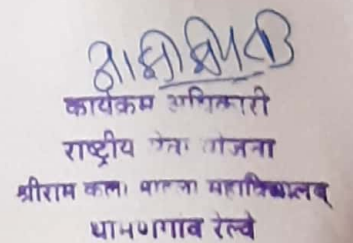 कार्यक्रम अधिकारी
राष्ट्रीय सेवा योजना
श्रीराम कला महाविद्यालय
धामणगाव रेल्वे